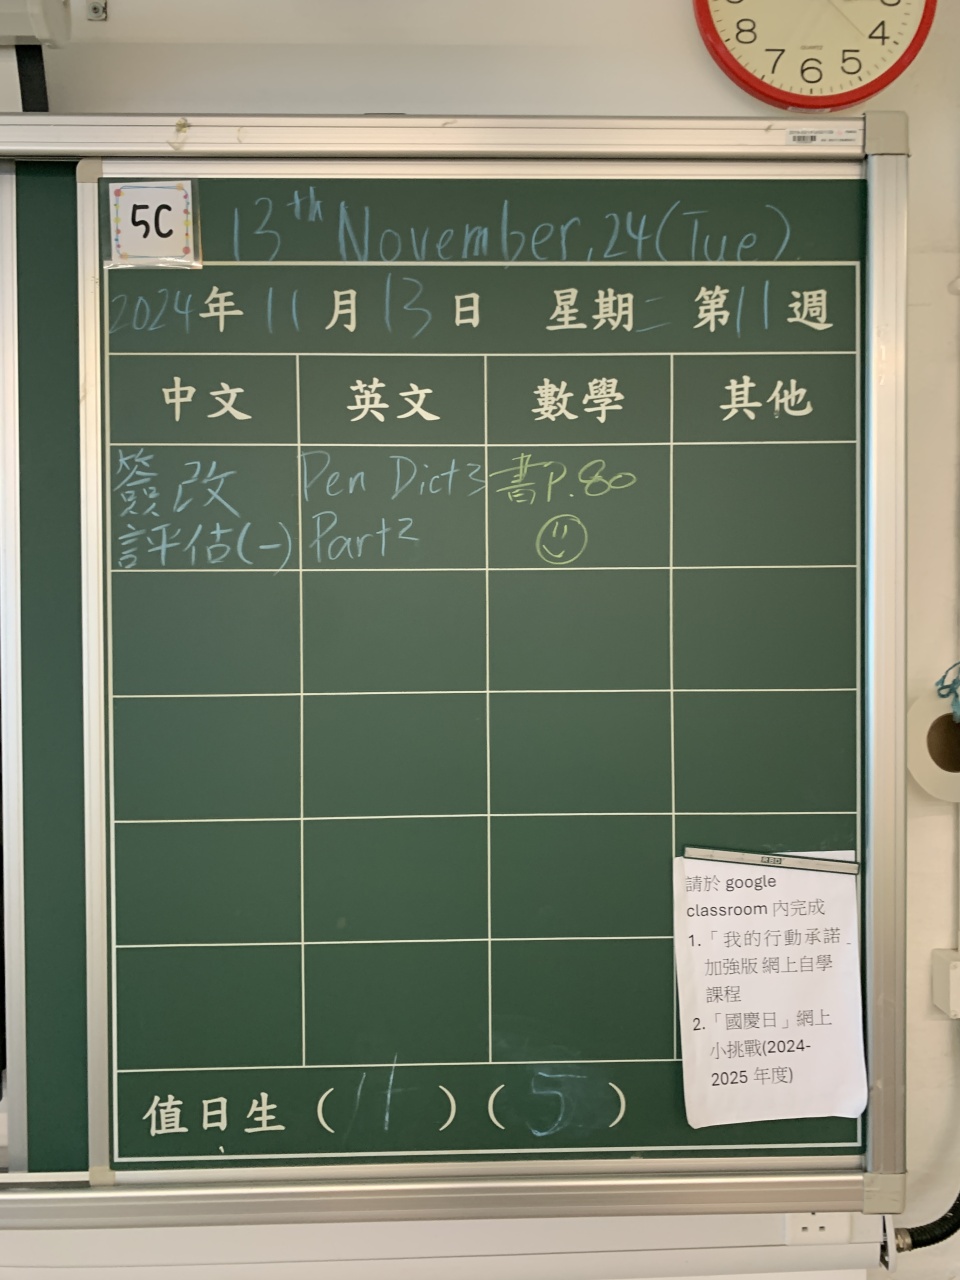 8 7 6 5 4
5C
13th November, 24 (Tue).
2024年 11月 13日 星期二 第11週
中文 英文 數學 其他
簽改 Pen Dict 3 書P.80
評估(一) Part 2
請於 google
classroom 內完成
1.「我的行動承諾」
加強版 網上自學
課程
2.「國慶日」網上
小挑戰(2024-
2025 年度)
值日生 ( ) ( 5 )